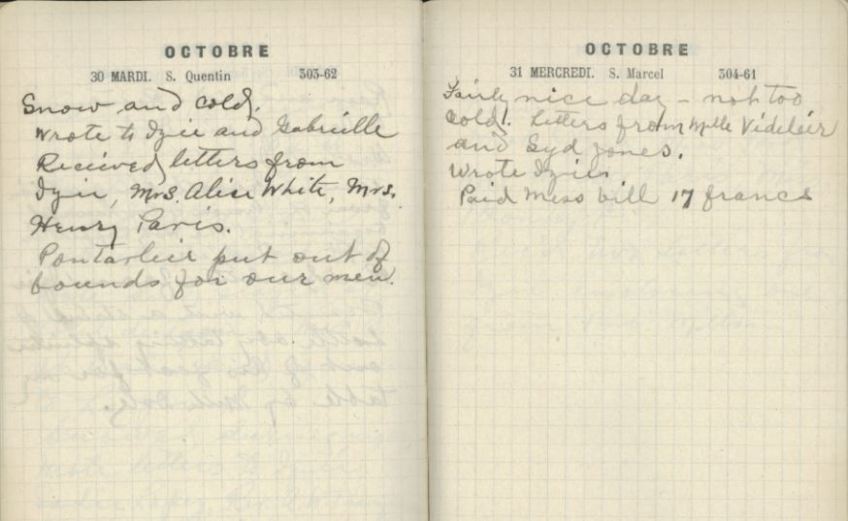 OCTOBRE
30 MARDI. S. Quentin 303-62
Snow and cold.
Wrote to Izie and Gabrielle
Recieved letters from
Izie, Mrs. Alice White, Mrs.
Henry Paris.
Pontarlier put out of
bounds for our men.
OCTOBRE
31 MERCREDI. S. Marcel 304-61
Fairly nice day - not too
cold. Letters from Mlle
and Syd Jones.
Wrote Izie.
Paid Mess bill 17 francs